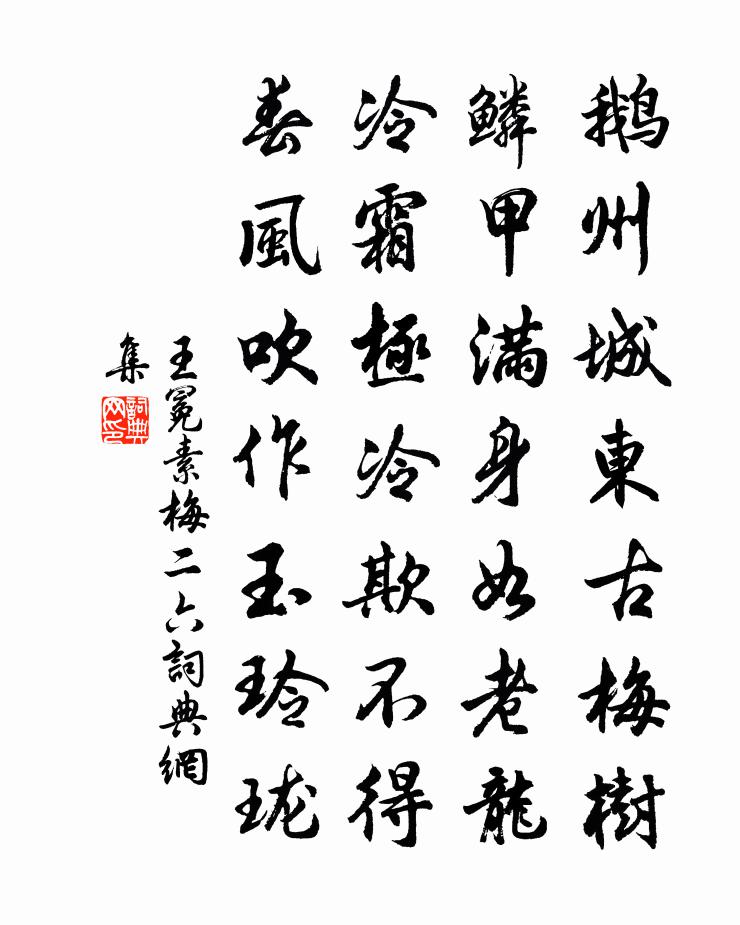 鹅州城東古梅樹
鱗甲滿身如老龍
冷霜極冷欺不得
春風吹作玉玲珑
王冕素梅二六詞典網
集
詞典
网印